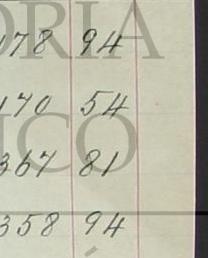 178 94
170 54
367 81
358 94